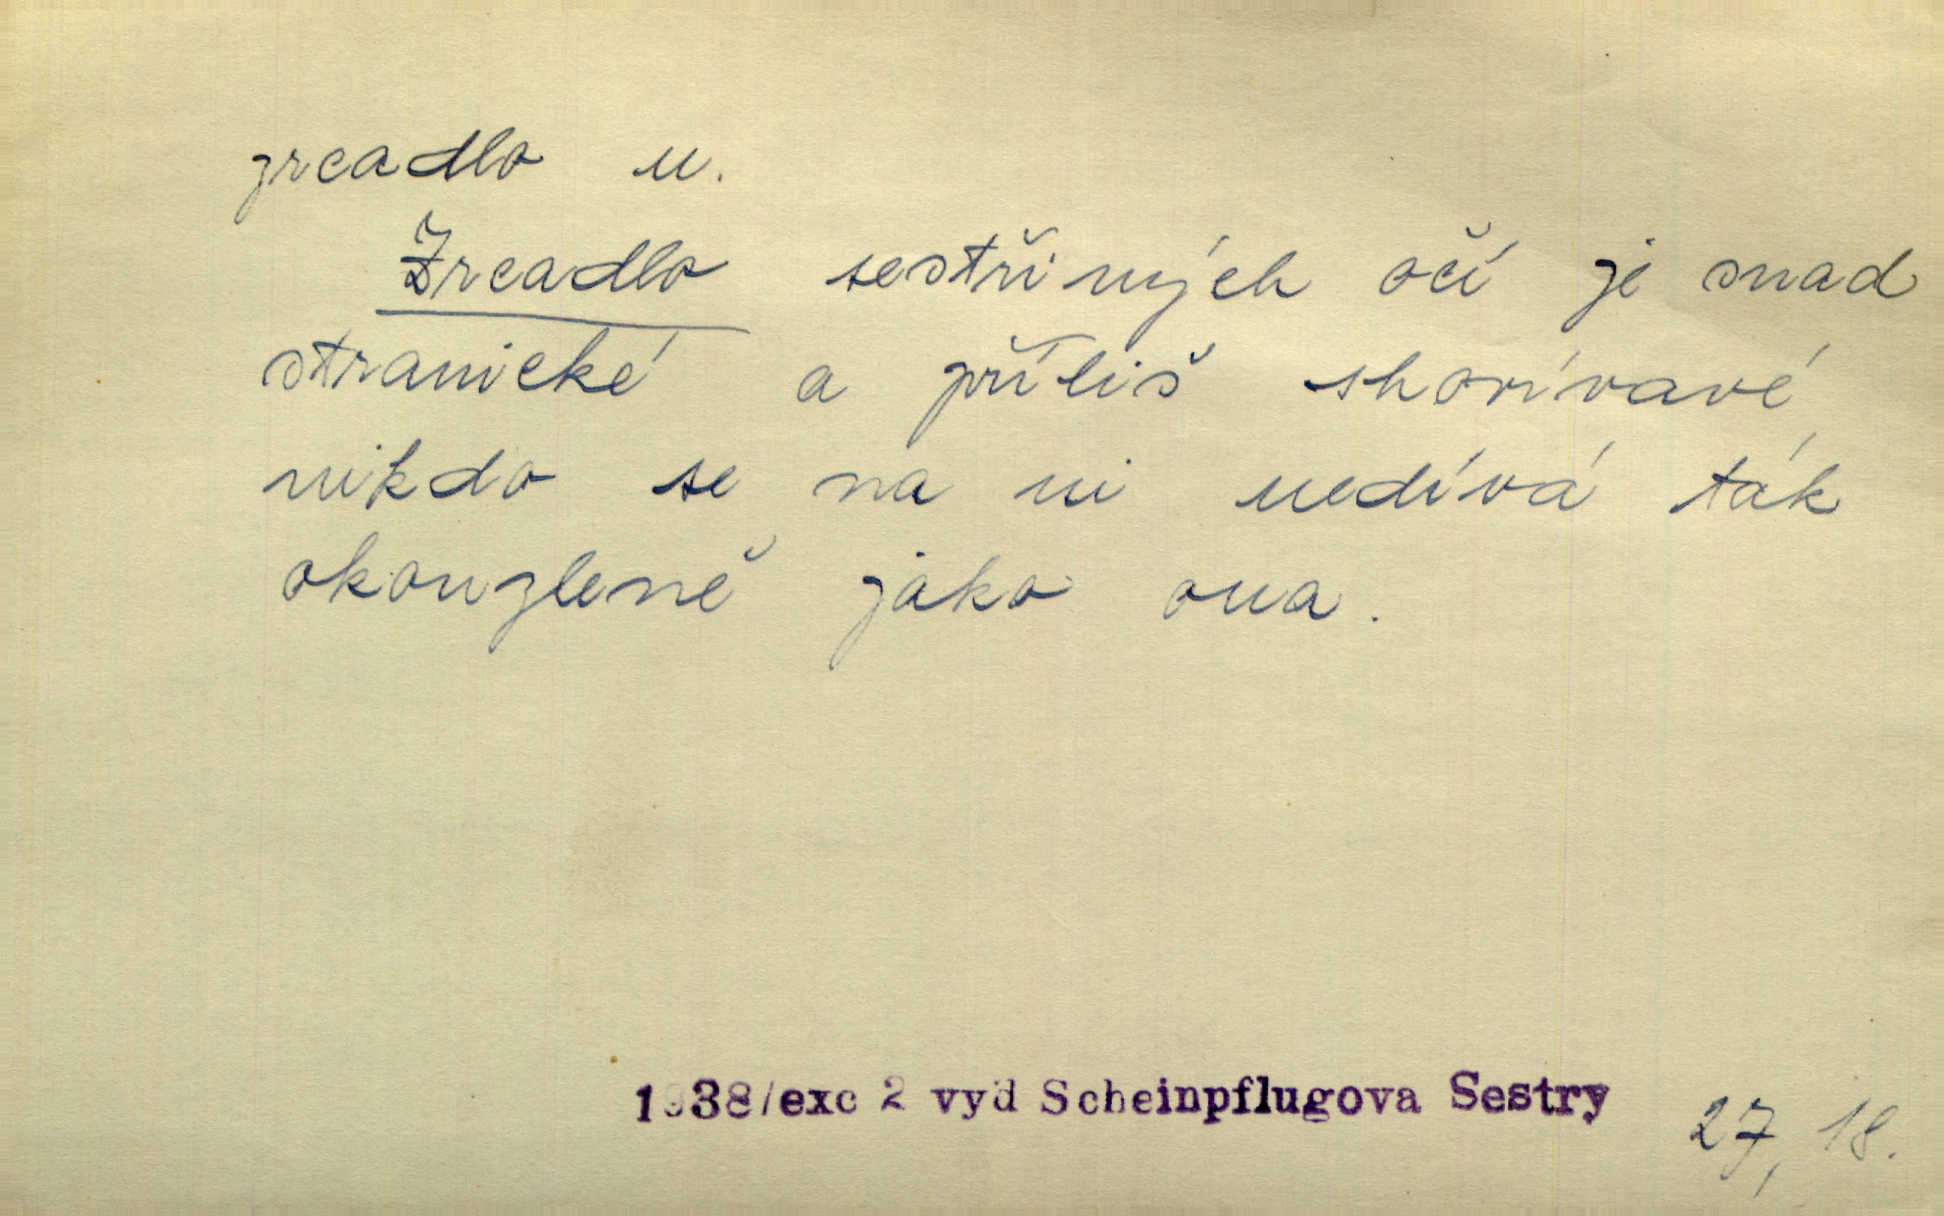 zrcadlo n.
Zrcadlo sestřiných očí je snad
stranické a příliš shovívavé,
nikdo se na ni nedívá tak
okouzleně jako ona.
1938/exc 2 vyd Scheinpflugova Sestry
27, 18.